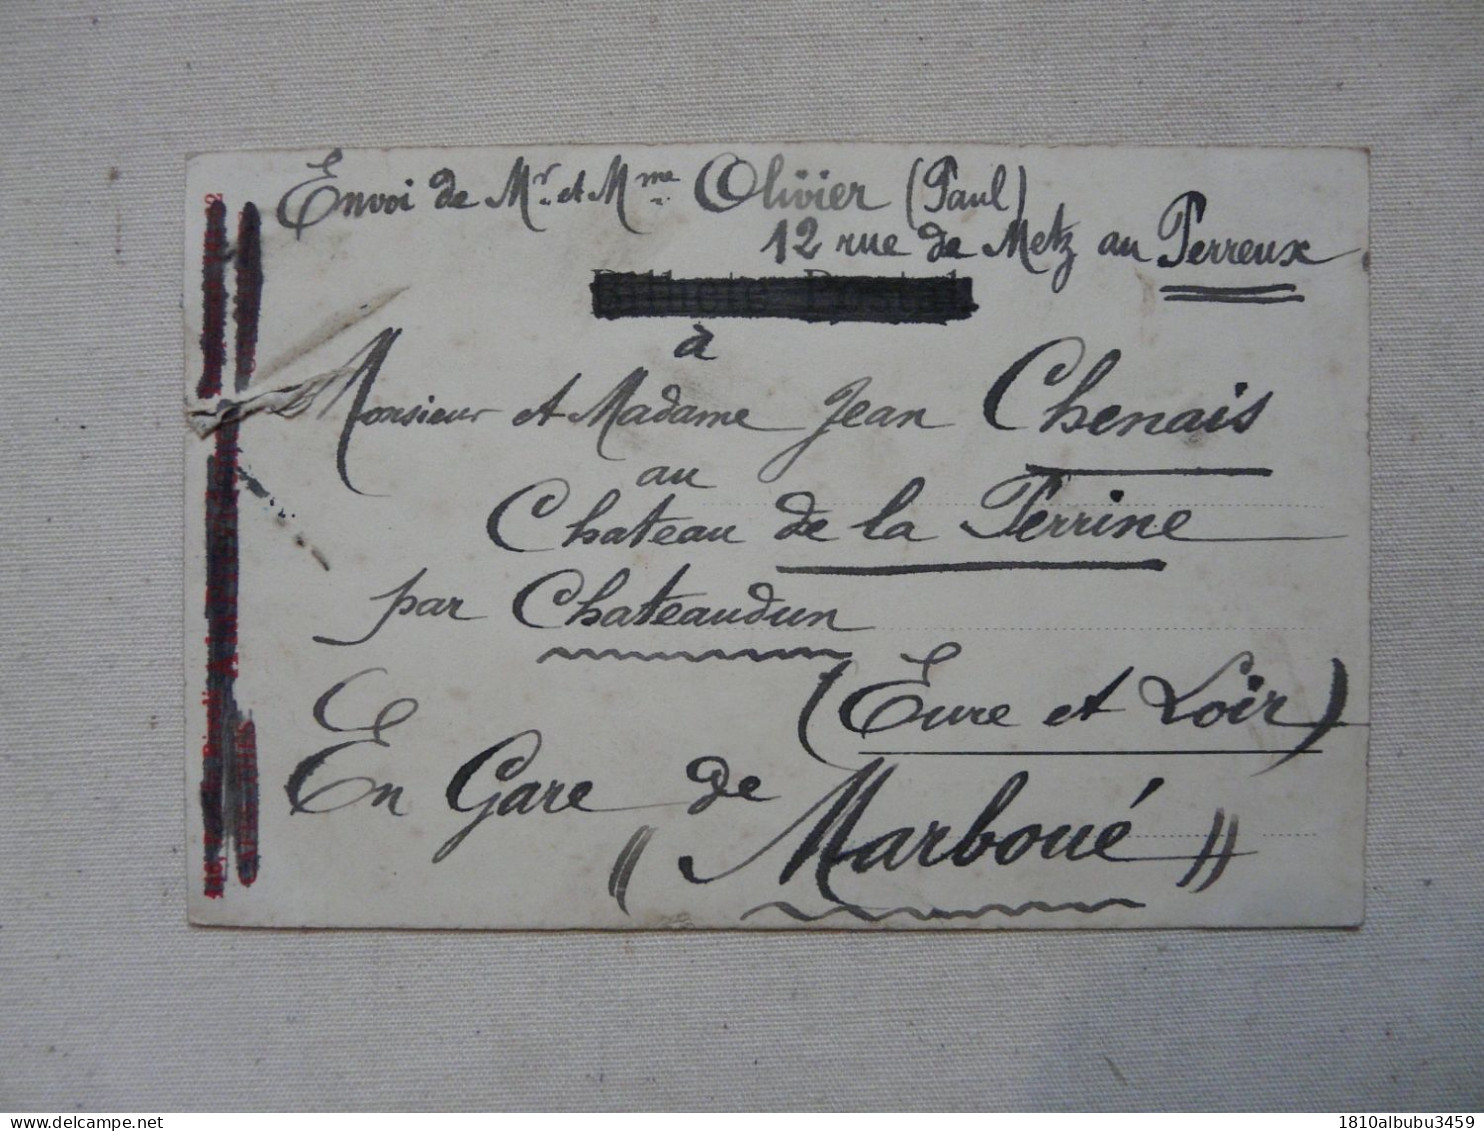 Envoi de Mr. et Mme. Olivier (Paul)
12 rue de Metz au Perreux
à
Monsieur et Madame Jean Chenais
au
Chateau de la Perrine
par Chateaudun
(Eure et Loir)
En Gare de
(( Marboué ))
1810albubu3459